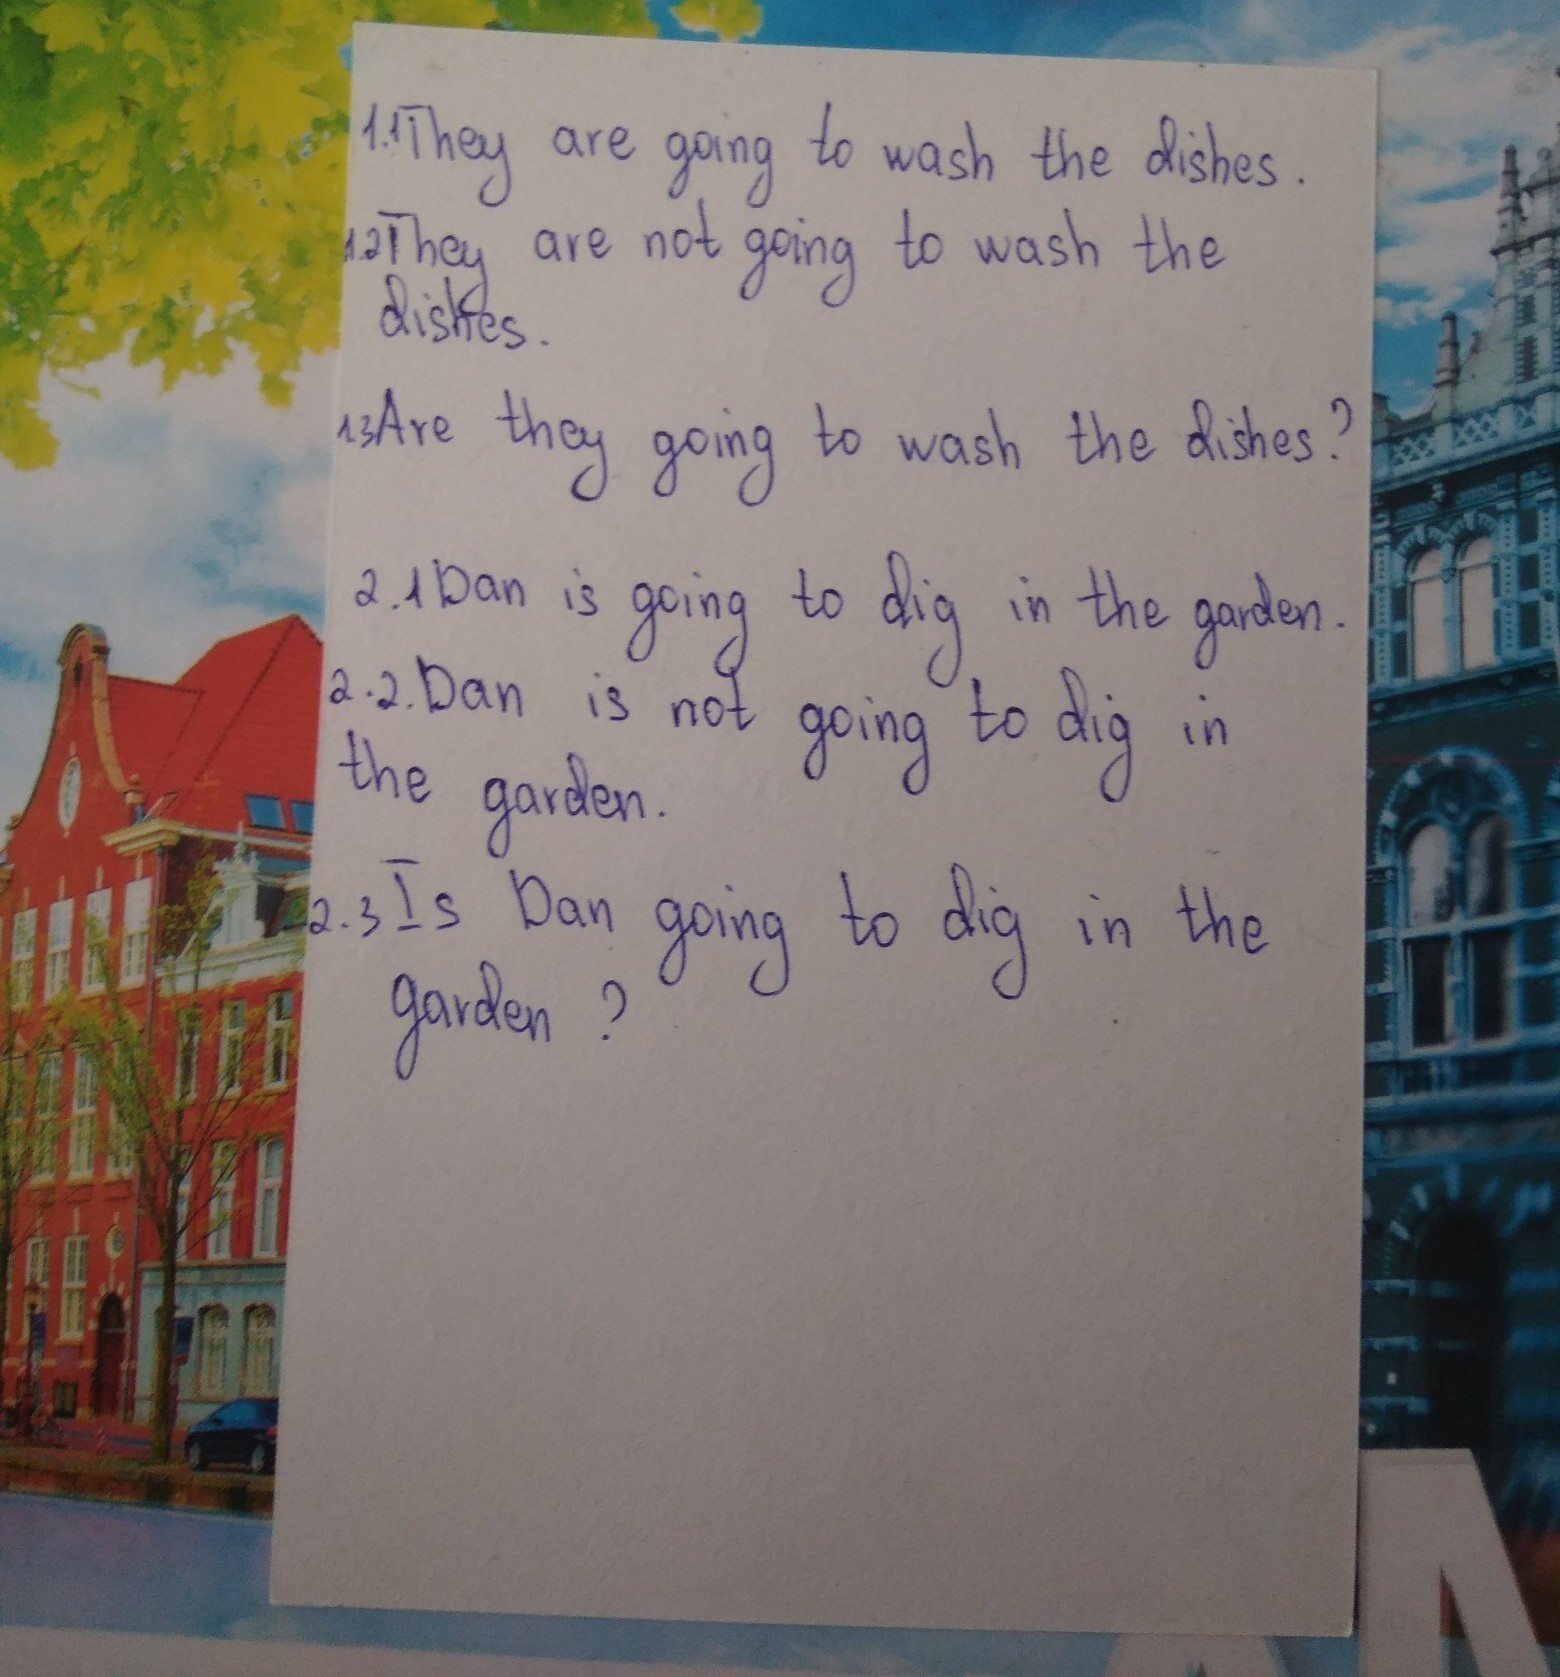 1.1They are going to wash the dishes.
1.2They are not going to wash the
dishes.
1.3Are they going to wash the dishes?
2.1Dan is going to dig in the garden.
2.2.Dan is not going to dig in
the garden.
2.3 Is Dan going to dig in the
garden ?
AM